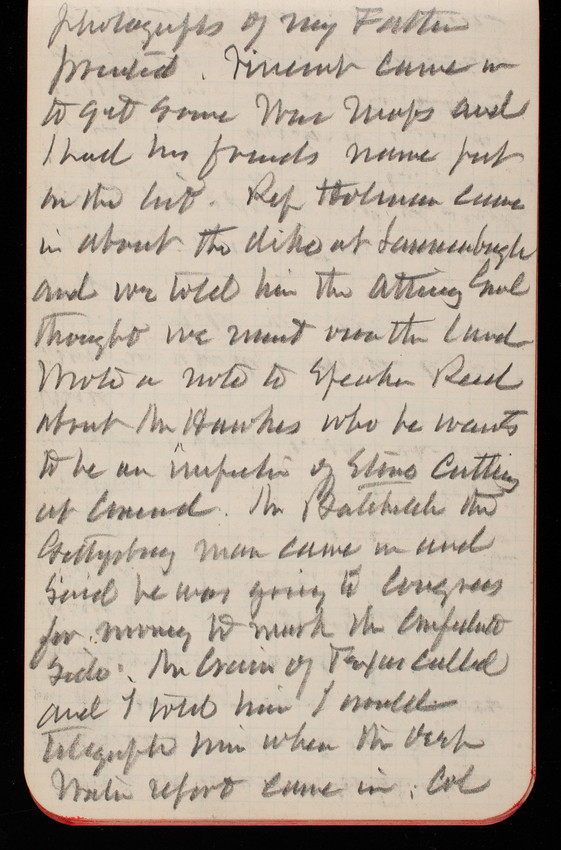 photographs of my Father
printed. Vincent came in
to get some War Maps and
I had his friends name put
on the list. Rep Holman came
in about the dike at Lawrenceburgh
and we told him the Attorney Genl
thought we must own the land
Wrote a note to Speaker Reed
about Mr Hawkes who he wants
to be an inspector of Stone Cutting
at
. Mr Batchelder the
Gettysburg man came in and
said he was going to Congress
for money to mark the Confederate
side. Mr Crain of Texas called
and I told him I would
telegraph him when the deep
water report came in. Col